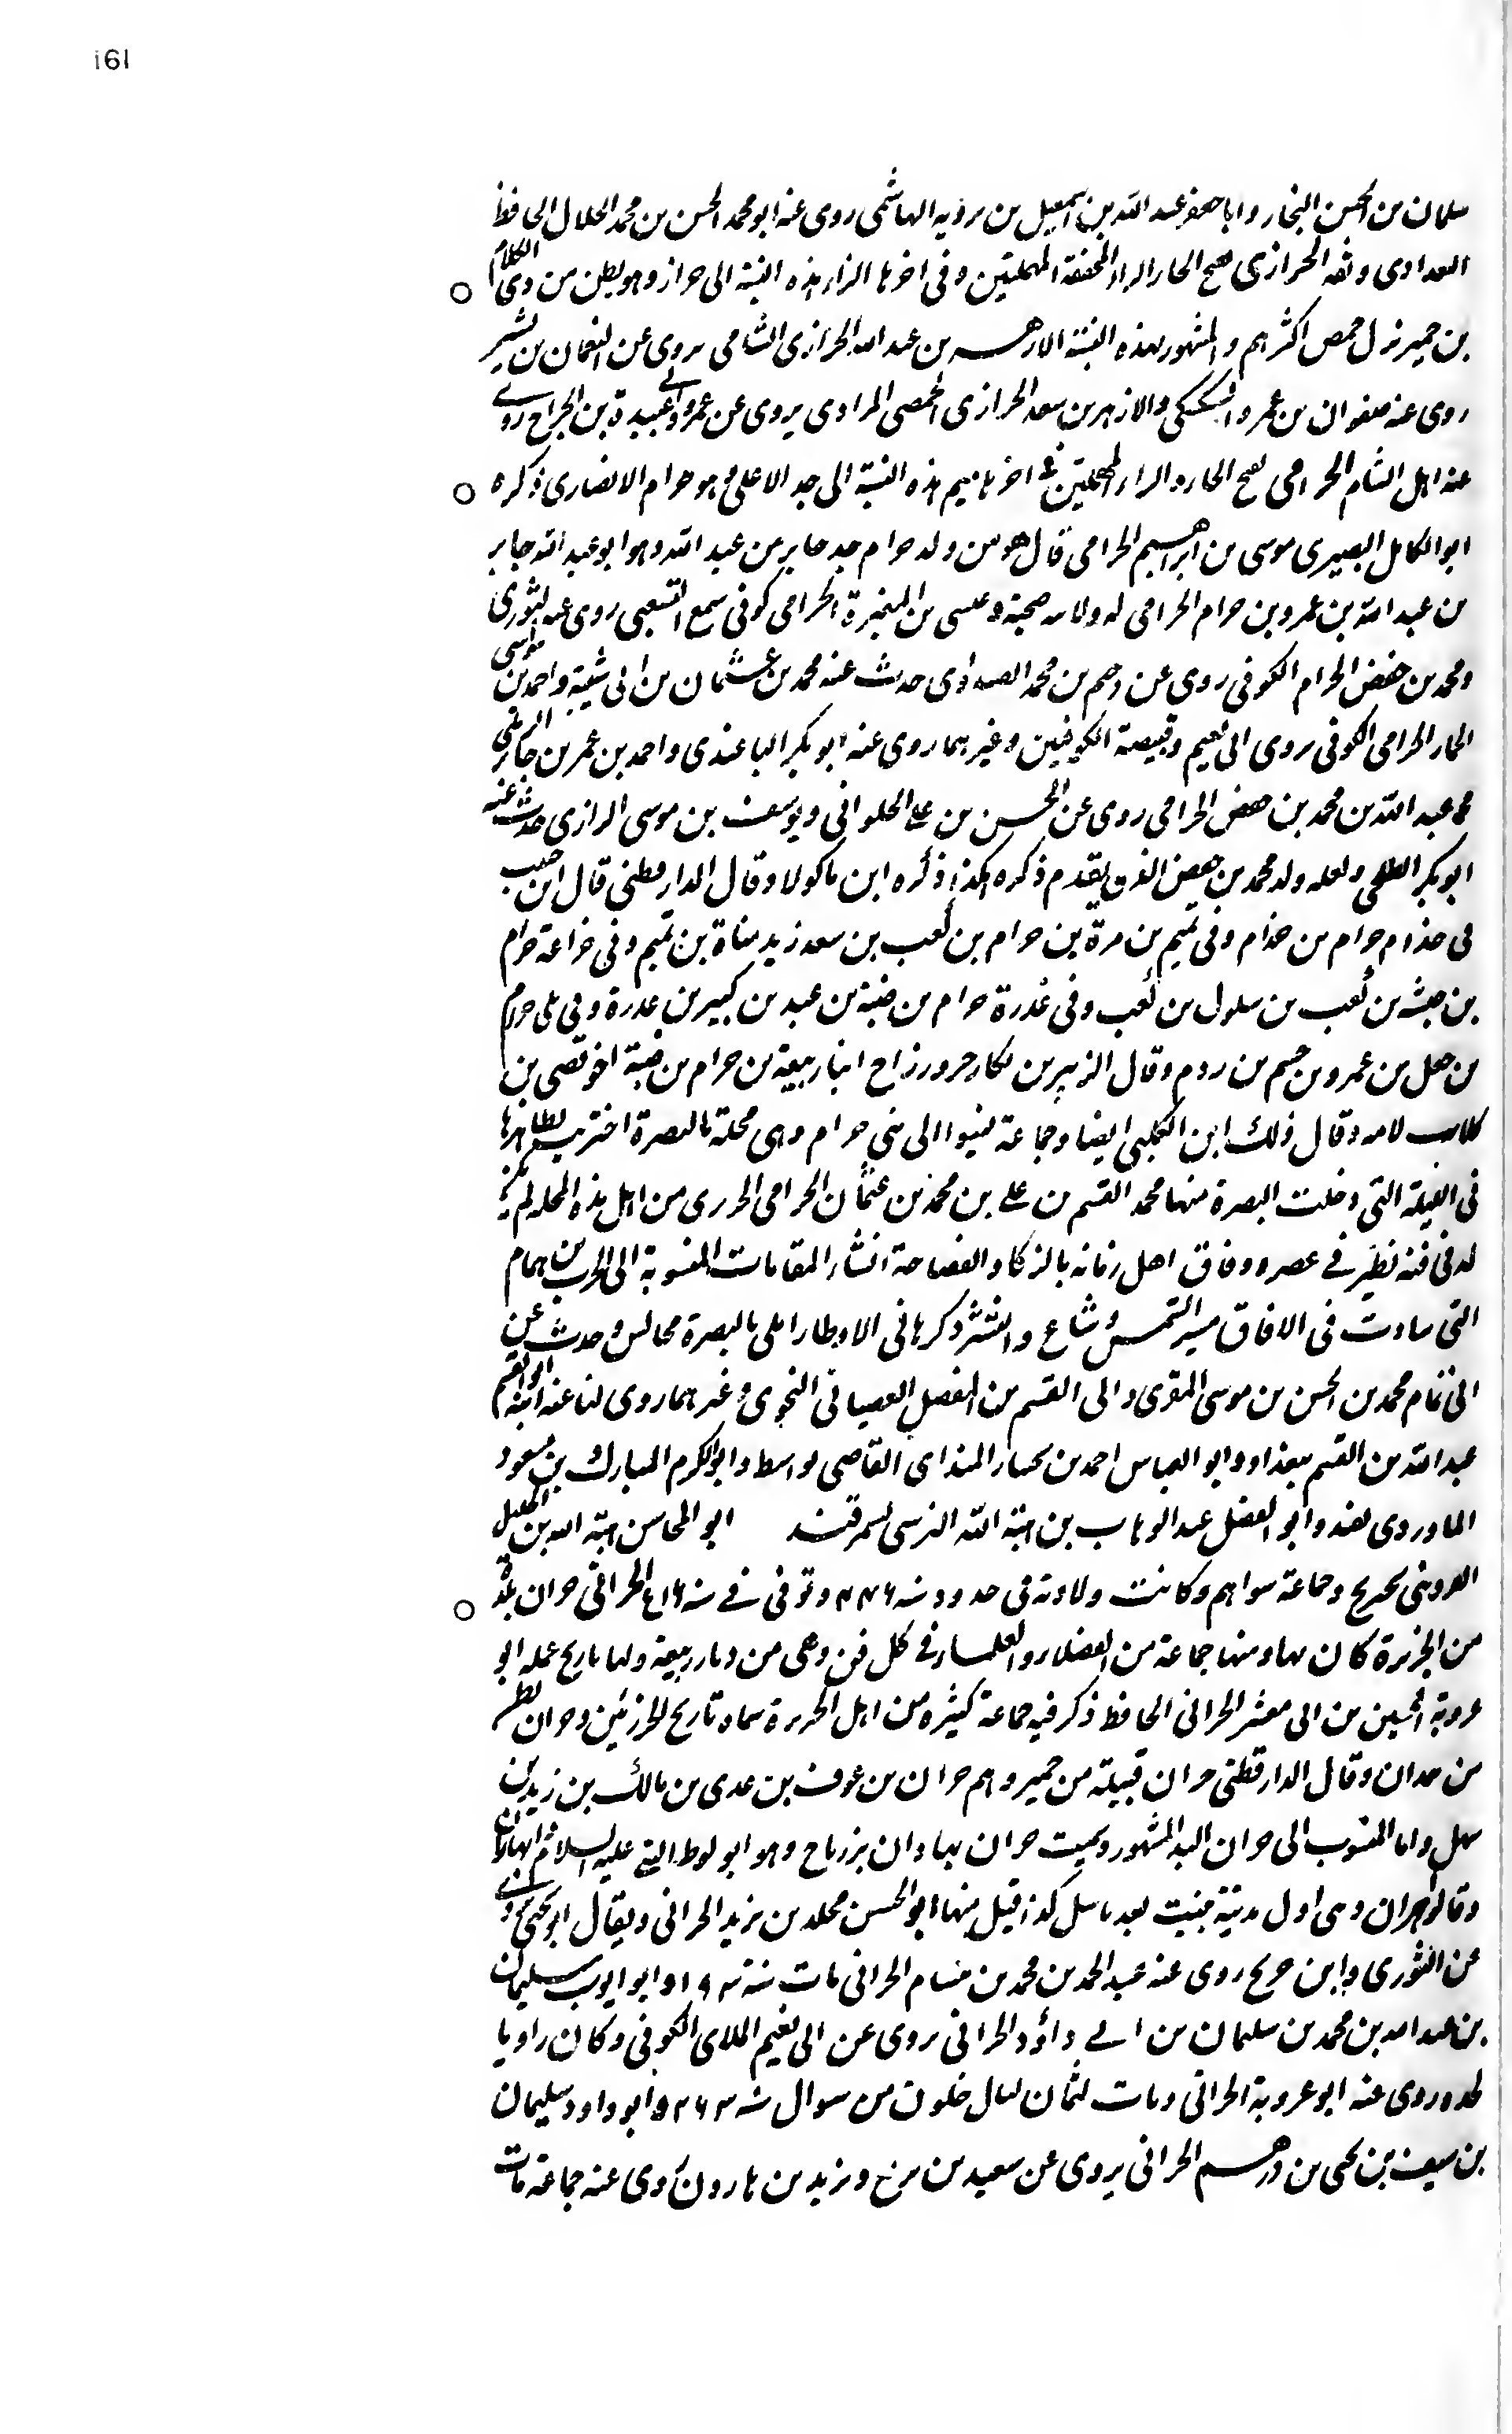 i61
سلمان بن الحسن النجار و ابا حفص عبد الله بن اسمعيل بن بريه الهاشمى روى عنه ابو محمد الحسن بن محمد الخلال الحافظ
البعدادى وثقه الحرازى بفتح الحاء الراء المخففة المهملتين وفى اخرها الزاء هذه النسبة الى حراز وهو بطن من ذى الكلاع
بن حمير نزل حمص اكثرهم والمشهور بهذه النسبة الازهر بن عبد الله الحرازى الشامى يروى عن النعمان بن بشير
روى عنه صفوان بن عمرو السكسكى والازهر بن سعد الحرازى الحمصى المرادى يروى عن عمر وابى عبيدة بن الجراح روى
عنه اهل الشام الحرامى بفتح الحاء والراء المهملتين فى اخرها ميم هذه النسبة الى جد الاعلى وهو حرام الانصارى ذكره
ابو الكامل البصيرى موسى بن ابراهيم الحرامى قال هو من ولد حرام جد جابر بن عبد الله وهو ابو عبد الله جابر
بن عبد الله بن عمرو بن حرام الحرامى له ولابيه صحبة وعيسى بن المغيرة الحرامى كوفى سمع الشعبى روى عنه الثورى
ومحمد بن حفص الحرام الكوفى روى عن دحيم بن محمد الصيداوى حدث عنه محمد بن عثمان بن ابى شيبة واحمد بن موسى
الحمار الحرامى الكوفى يروى ابى نعيم وقبيصة الكوفيين وغيرهما روى عنه ابو بكر الباغندى واحمد بن عمر بن جابر الرملى
محمد عبد الله بن محمد بن حفص الحرامى روى عن الحسن بن على الحلوانى ويوسف بن موسى الرازى حدث عنه
ابو بكر الطلحى ولعله ولد محمد بن حفص الذى يقدم ذكره هكذا ذكره ابن ماكولا وقال الدار قطنى قال ابن حبيب
فى جذام حرام بن جذام وفى تميم بن مرة بن حرام بن كعب بن سعد زيد مناة بن تميم وفى خزاعة حرام
بن حبشه بن كعب بن سلول بن كعب وفى عذرة حرام بن ضنة بن عبد بن كبير بن عذرة وفى بلى حرام
بن جعل بن عمرو بن جشم بن ردم وقال الزبير بن بكار حرو ورزاح ابنا ربيعة بن حرام بن ضنة اخو قصى بن
كلاب لامه وقال ذلك ابن الكلبى ايضا وجماعة نسبوا الى بنى حرام وهى محلة بالبصرة
فى الفيلة التى دخلت البصرة منها محمد القسم بن على بن محمد بن عثمان الحرامى الحريرى من اهل هذه المحله لم
له فى فنه نظير فى عصره وفاق اهل زمانه بالزكاء والفصاحة انشاء المقامات المنسوبة الى الحرث بن همام
التى سارت فى الافاق مسير الشمس وشاع وانتشر ذكرها فى الاقطار املى بالبصرة مجالس وحدث عن
ابى تمام محمد بن الحسن بن موسى المقرى وابى القسم بن الفضل القصبانى النحوى وغيرهما روى لنا عنه ابنه ابو القسم
عبد الله بن القسم ببغداد وابو العباس احمد بن بختيار المنداى القاضى بواسط وابو الكرم المبارك بن مسعود
الماوردى وابو الفضل عبد الوهاب بن هبة الله النرسى بسمرقند ابو المحاسن هبة الله بن الخليل
القزوينى وجماعة سواهم وكانت ولادته فى حدود سنة ٤٤٦ وتوفى فى سنة ٥١٦ الحرانى حران بلدة
من الجزيرة كان بها ومنها جماعة من الفضلاء والعلماء فى كل فن وهى من ديار ربيعة ولها تاريخ عمله ابو
عروبة الحسين بن ابى معشر الحرانى الحافظ ذكر فيه جماعة كثيره من اهل الجزيرة سماه تاريخ الجزريين وحران بطن
من همدان وقال الدار قطنى حران قبيلة من حمير وهم حران بن عوف بن عدى بن مالك بن زيد بن
سهل واما المنسوب الى حران البلد المشهور وسميت حران بهاران بن تارح وهو ابو لوط النبى عليه السلام
وقالوا هاران وهى اول مدينة بنيت بعد بابل كذا قيل منها ابو الحسن مخلد بن يزيد الحرانى ويقال ابو يحيى يروى
عن الثورى وابن جريج روى عنه عبد الحمد بن محمد بن مستام الحرانى مات سنة ١٩٣ وابو ايوب سليمان
بن عبد الله بن محمد بن سليمان بن ابى داؤد الحرانى يروى عن ابى نعيم الملاى الكوفى وكان راويا
لجده روى عنه ابو عروبة الحرانى ومات لثمان ليال خلون من شوال سنة ٢٦٣ ابو داود سليمان
بن سيف بن يحيى بن درهم الحرانى يروى عن سعيد بن بزيع ويزيد بن هارون روى عنه جماعة مات